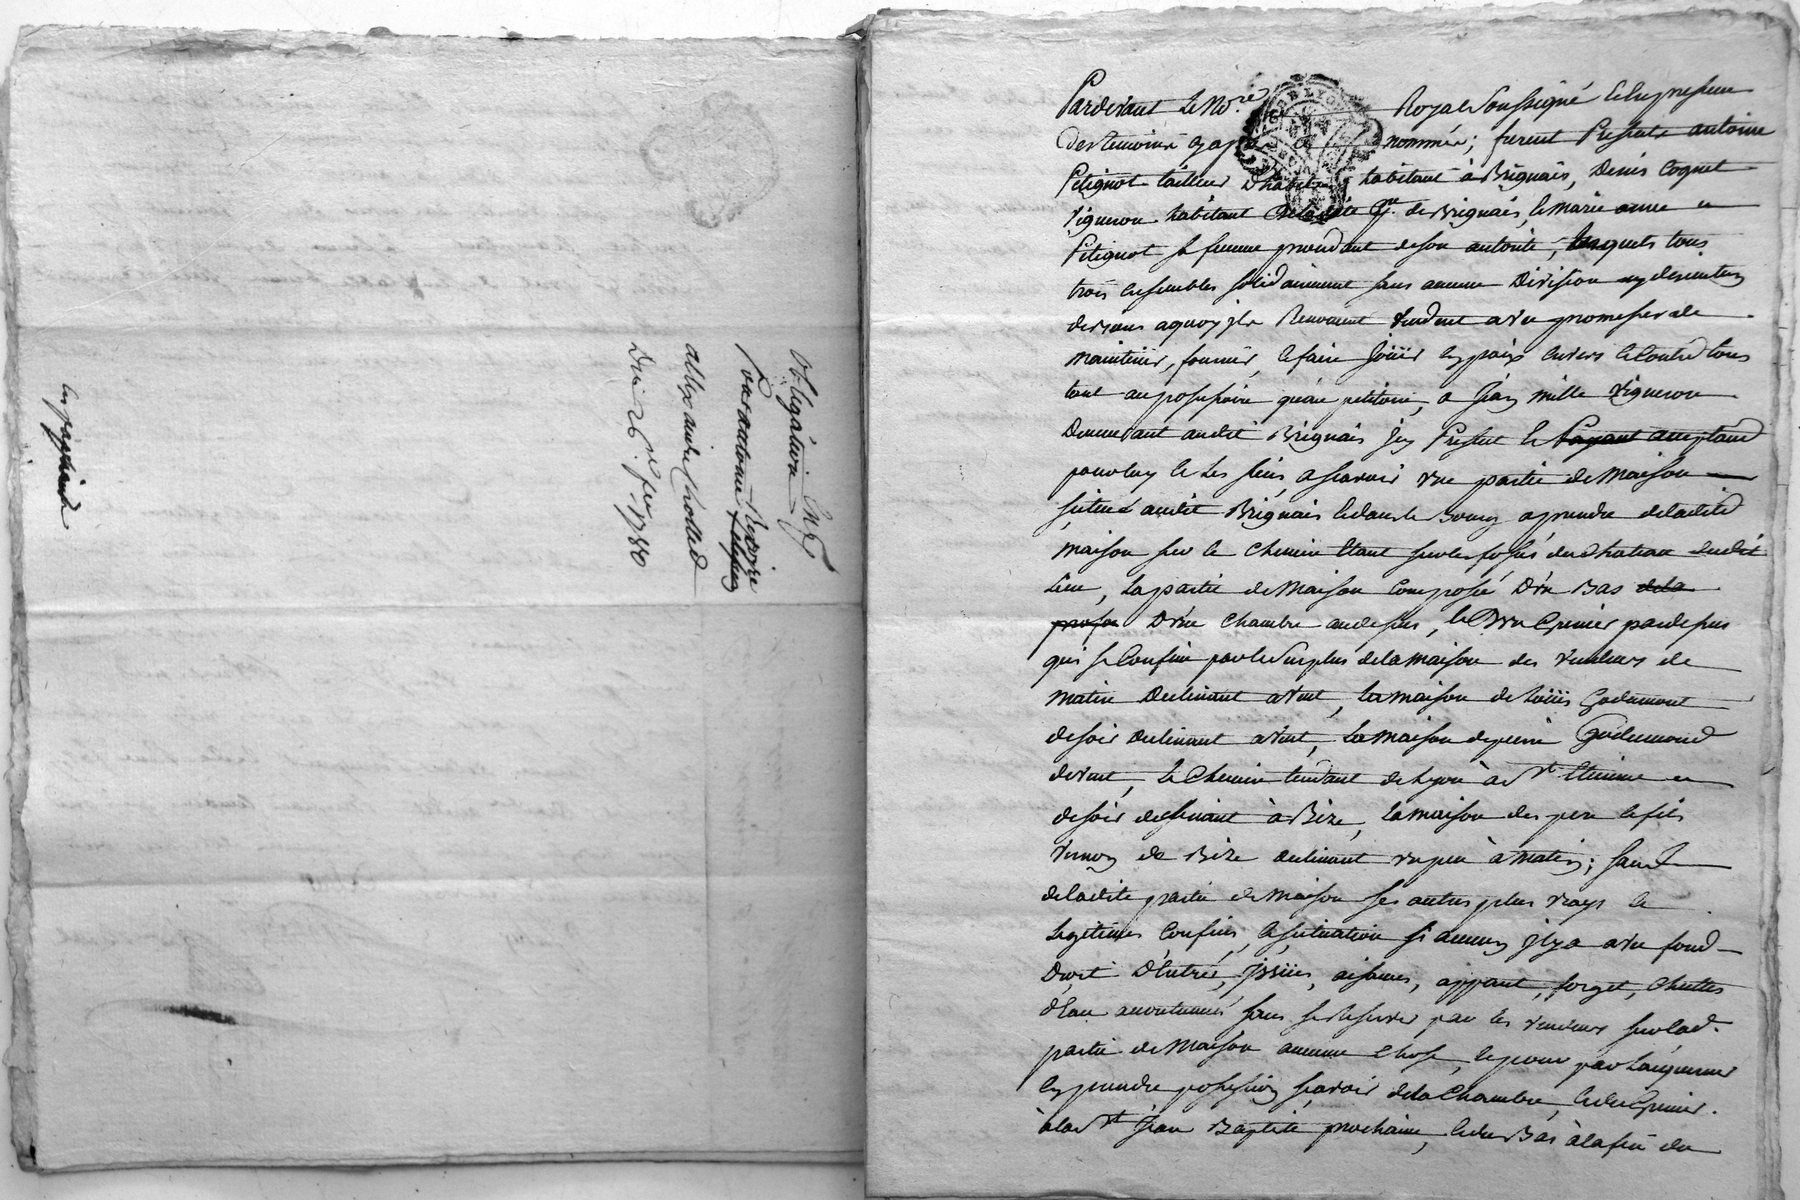 Obligation
par antoine
allexandre Chollad
Du 26e. fer. 1780
Pardevant Le Nore. Royal Soussigné & En presence
des temoins cy ap nommés; furent Presents antoine
Petignot tailleur D'habits habitant à Brignais, Denis Coquet
Vigneron habitant de la dite ps. de Brignais, & marie anne
Petignot sa femme procedant de son autorité, lesquels tous
trois Ensembles solidairement sans aucune Division ny discution
de biens aquoy ils Renoncent Vendent avec promesse de
maintenir, fournir, & faire Joüir en paix Envers & Contre tous
tant au possessoire qu'au petitoire, a Jean mille Vigneron
Demeurant audit Brignais Jcy Present & acceptand
pour luy & Les siens, asçavoir Une partie de Maison
située audit Brignais & dans le Bourg a prendre de ladite
Maison sur le Chemin Etant sur les fossés du Chateau dudit
Lieu, La partie de Maison Composée D'un Bas de la
D'une Chambre audessus, & D'un Grenier par dessus
qui se Confine par le Surplus de la maison des Vendeurs de
matin Declinant a Vent, La maison de Loüis Godemont
de soir Declinant a Vent, La maison de pierre Godemond
de Vent, Le Chemin tendant de Lyon à St. Etienne
de soir declinant à Bize, La maison des pere & fils
de Bize declinant un peu à matin; sauf
de ladite partie de Maison ses autres plus Vrays &
Legitimes Confins, & situation si aucuns Jl y a avec fond
Droit D'Entrées, Jssües, aisances, appant, forget, Chuttes
d'Eau accoutumés sans se Reserver par les Vendeurs sur lad.
partie de Maison aucune Chose, & pour par L'acquereur
En prendre possession sçavoir de la Chambre, & du Grenier
à la St. Jean Baptiste prochaine, & du Bas à la fin du